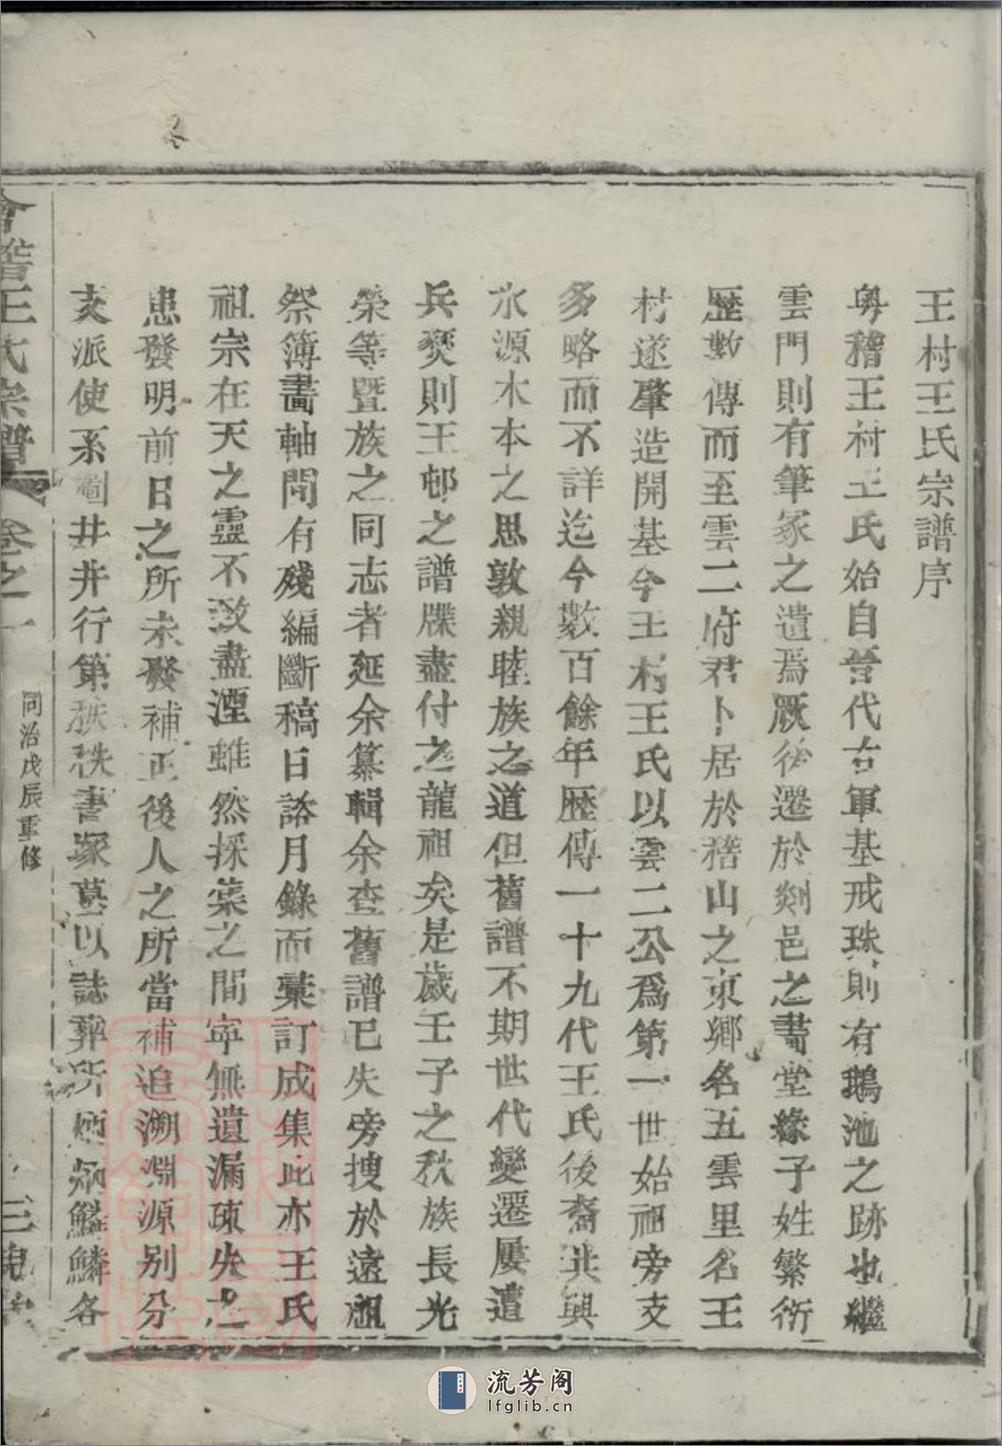 王村王氏宗譜序
粤稽王村王氏始自晉代右軍基戒珠則有鵝池之跡也繼
雲門則有筆冢之遺爲厥後遷於剡邑之書堂緣子姓繁衍
歷數傳而至雲二府君卜居於稽山之東鄉名五雲里名王
村遂肇造開基今王村王氏以雲二公爲第一世始祖旁支
多略而不詳迄今數百餘年歷傳一十九代王氏後裔共興
水源木本之思敦親睦族之道但舊譜不期世代變遷屢遭
兵燹則王邨之譜牒盡付之龍祖矣是歲壬子之秋族長光
榮等暨族之同志者延余纂輯余查舊譜已失旁搜於遠
祭簿畫軸間有殘編斷稿日諮月錄而彙訂成集此亦王氏
祖宗在天之靈不致盡湮雖然採葉之間寧無遺漏疎失之
患發明前日之所未發補正後人之所當補追溯淵源別分
支派使系圖井井行第秩秩書塚墓以誌葬所炳炳鱗各
會稽王氏宗譜 卷之一
同治戊辰重修
三
流芳阁
lfglib.cn